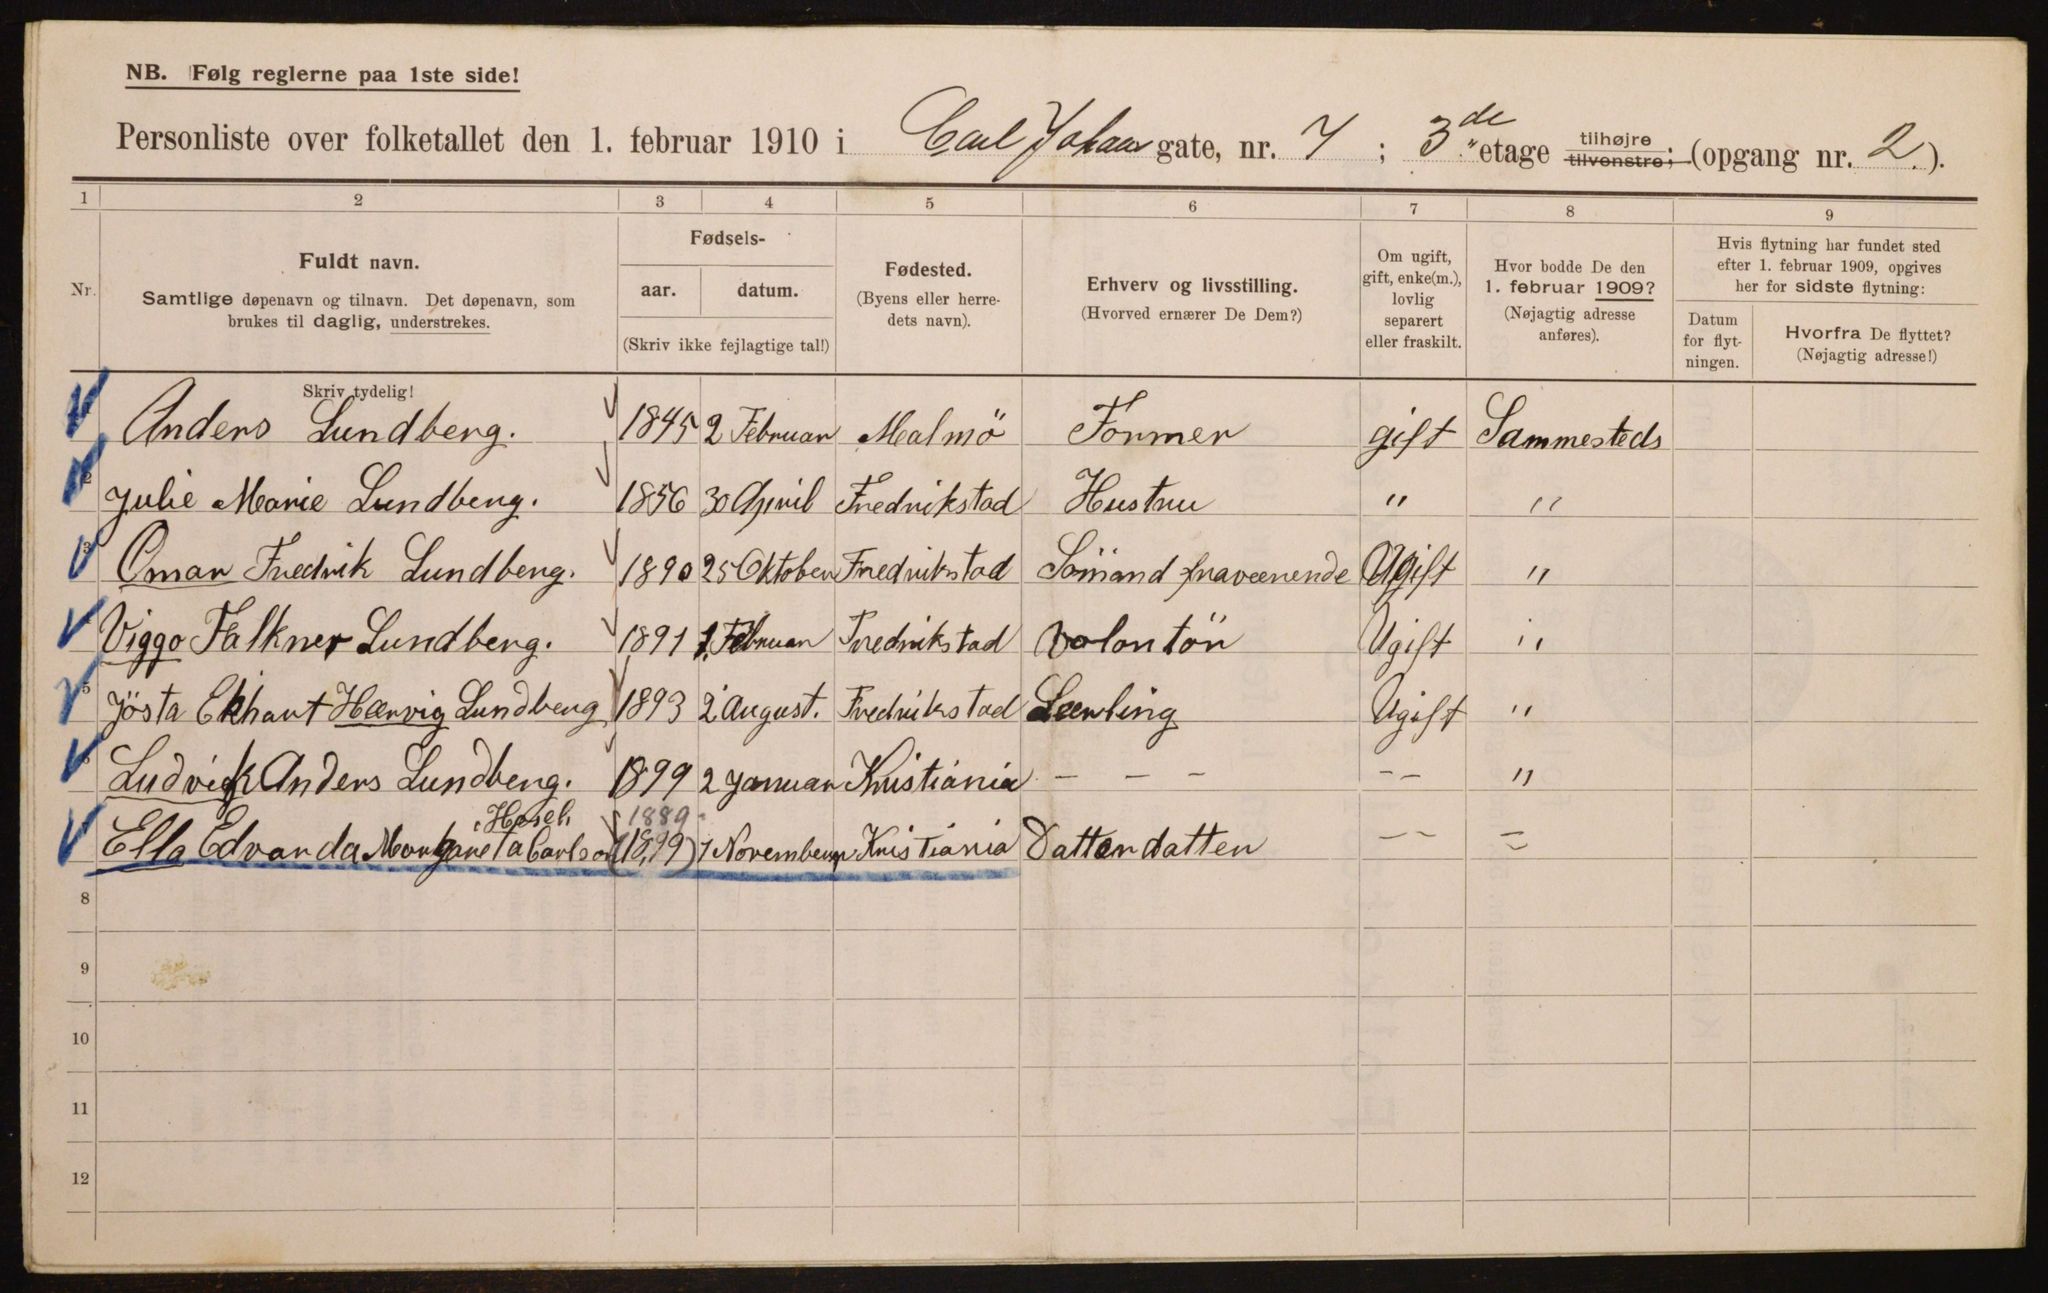 NB. Følg reglerne paa 1ste side!
Personliste over folketallet den 1. februar 1910 i Carl Johans gate, nr. 7 ; 3de etage tilhøjre tilvenstre; (opgang nr. 2.).
1 2 3 4 5 6 7 8 9
Nr.
Fuldt navn.
Samtlige døpenavn og tilnavn. Det døpenavn, som
brukes til daglig, understrekes.
Fødsels-
aar. datum.
(Skriv ikke fejlagtige tal!)
Fødested.
(Byens eller herre-
dets navn).
Erhverv og livsstilling.
(Hvorved ernærer De Dem?)
Om ugift,
gift, enke(m.),
lovlig
separert
eller fraskilt.
Hvor bodde De den
1. februar 1909?
(Nøjagtig adresse
anføres).
Hvis flytning har fundet sted
efter 1. februar 1909, opgives
her for sidste flytning:
Datum
for flyt-
ningen.
Hvorfra De flyttet?
(Nøjagtig adresse!)
Skriv tydelig!
Anders Lundberg. 1845 2 Februar Malmö Former gift Sammesteds
2 Julie Marie Lundberg. 1856 30 April Fredrikstad Hustru " "
3 Omar Fredrik Lundberg. 1890 25 Oktober Fredrikstad Sömand fraværende Ugift "
Viggo Falkner Lundberg. 1891 1. Februar Fredrikstad Volontör Ugift "
5 Jösta Ekhart Hærvig Lundberg 1893 2 August. Fredrikstad Lærling Ugift "
6 Ludvik Anders Lundberg. 1899 2 Januar Kristiania - - - - - "
1889
Ella Edvarda Margareta Carlson (1899) 7 November Kristiania Datterdatter - - =
8
9
10
11
12